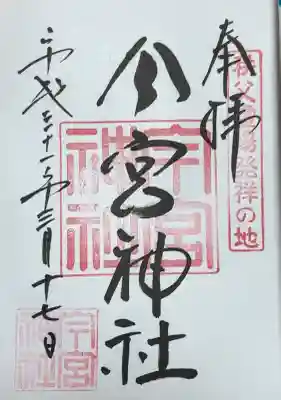 奉拝
秩父霊場発祥の地
今宮神社
今宮神社
平成三十一年三月十七日
今宮神社